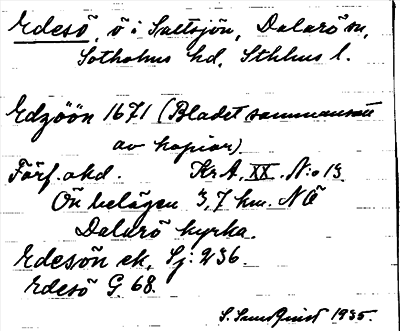 Edesö, ö i Saltsjön, Dalarö sn,
Sotholms hd, Sthlms l.
Edzöön 1671 (Bladet sammansatt
av kopior).
Förf. okd. Kr. A. XX. N:o 13
Ön belägen 3,7 km. NÖ
Dalarö kyrka.
Edesön ek. Sj: 236.
Edesö G. 68.
S. Sundquist 1935.